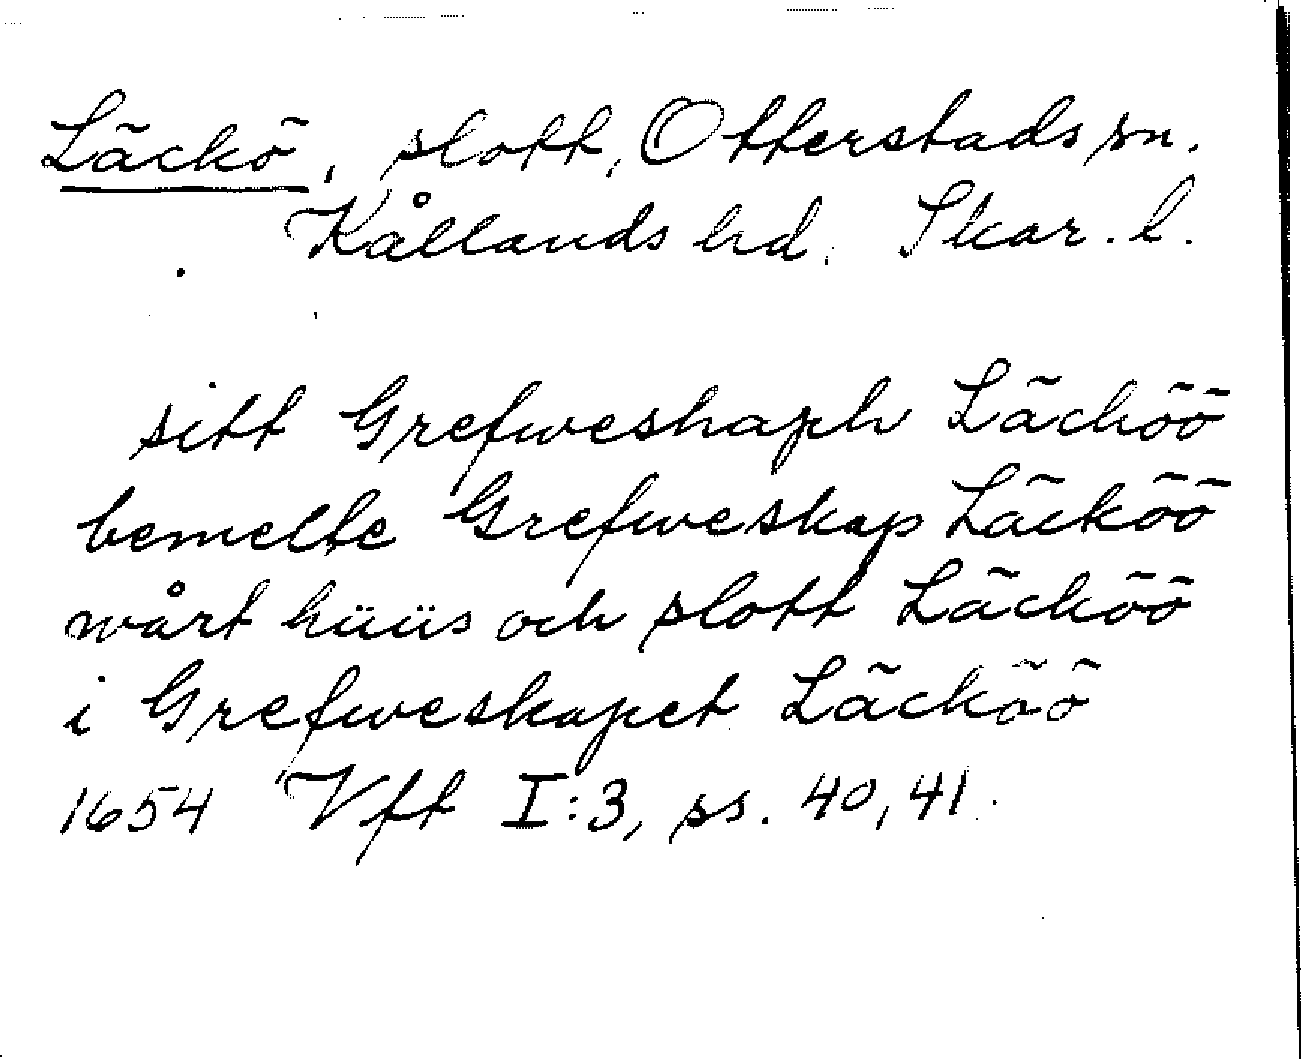 Läckö, slott, Otterstads sn.
Kållands hd. Skar. l.
sitt Grefweskaph Läcköö
bemelte Grefweskap Läcköö
wårt hüüs och slott Läcköö
i Grefweskapet Läcköö
1654 Vft I:3, ss. 40, 41.